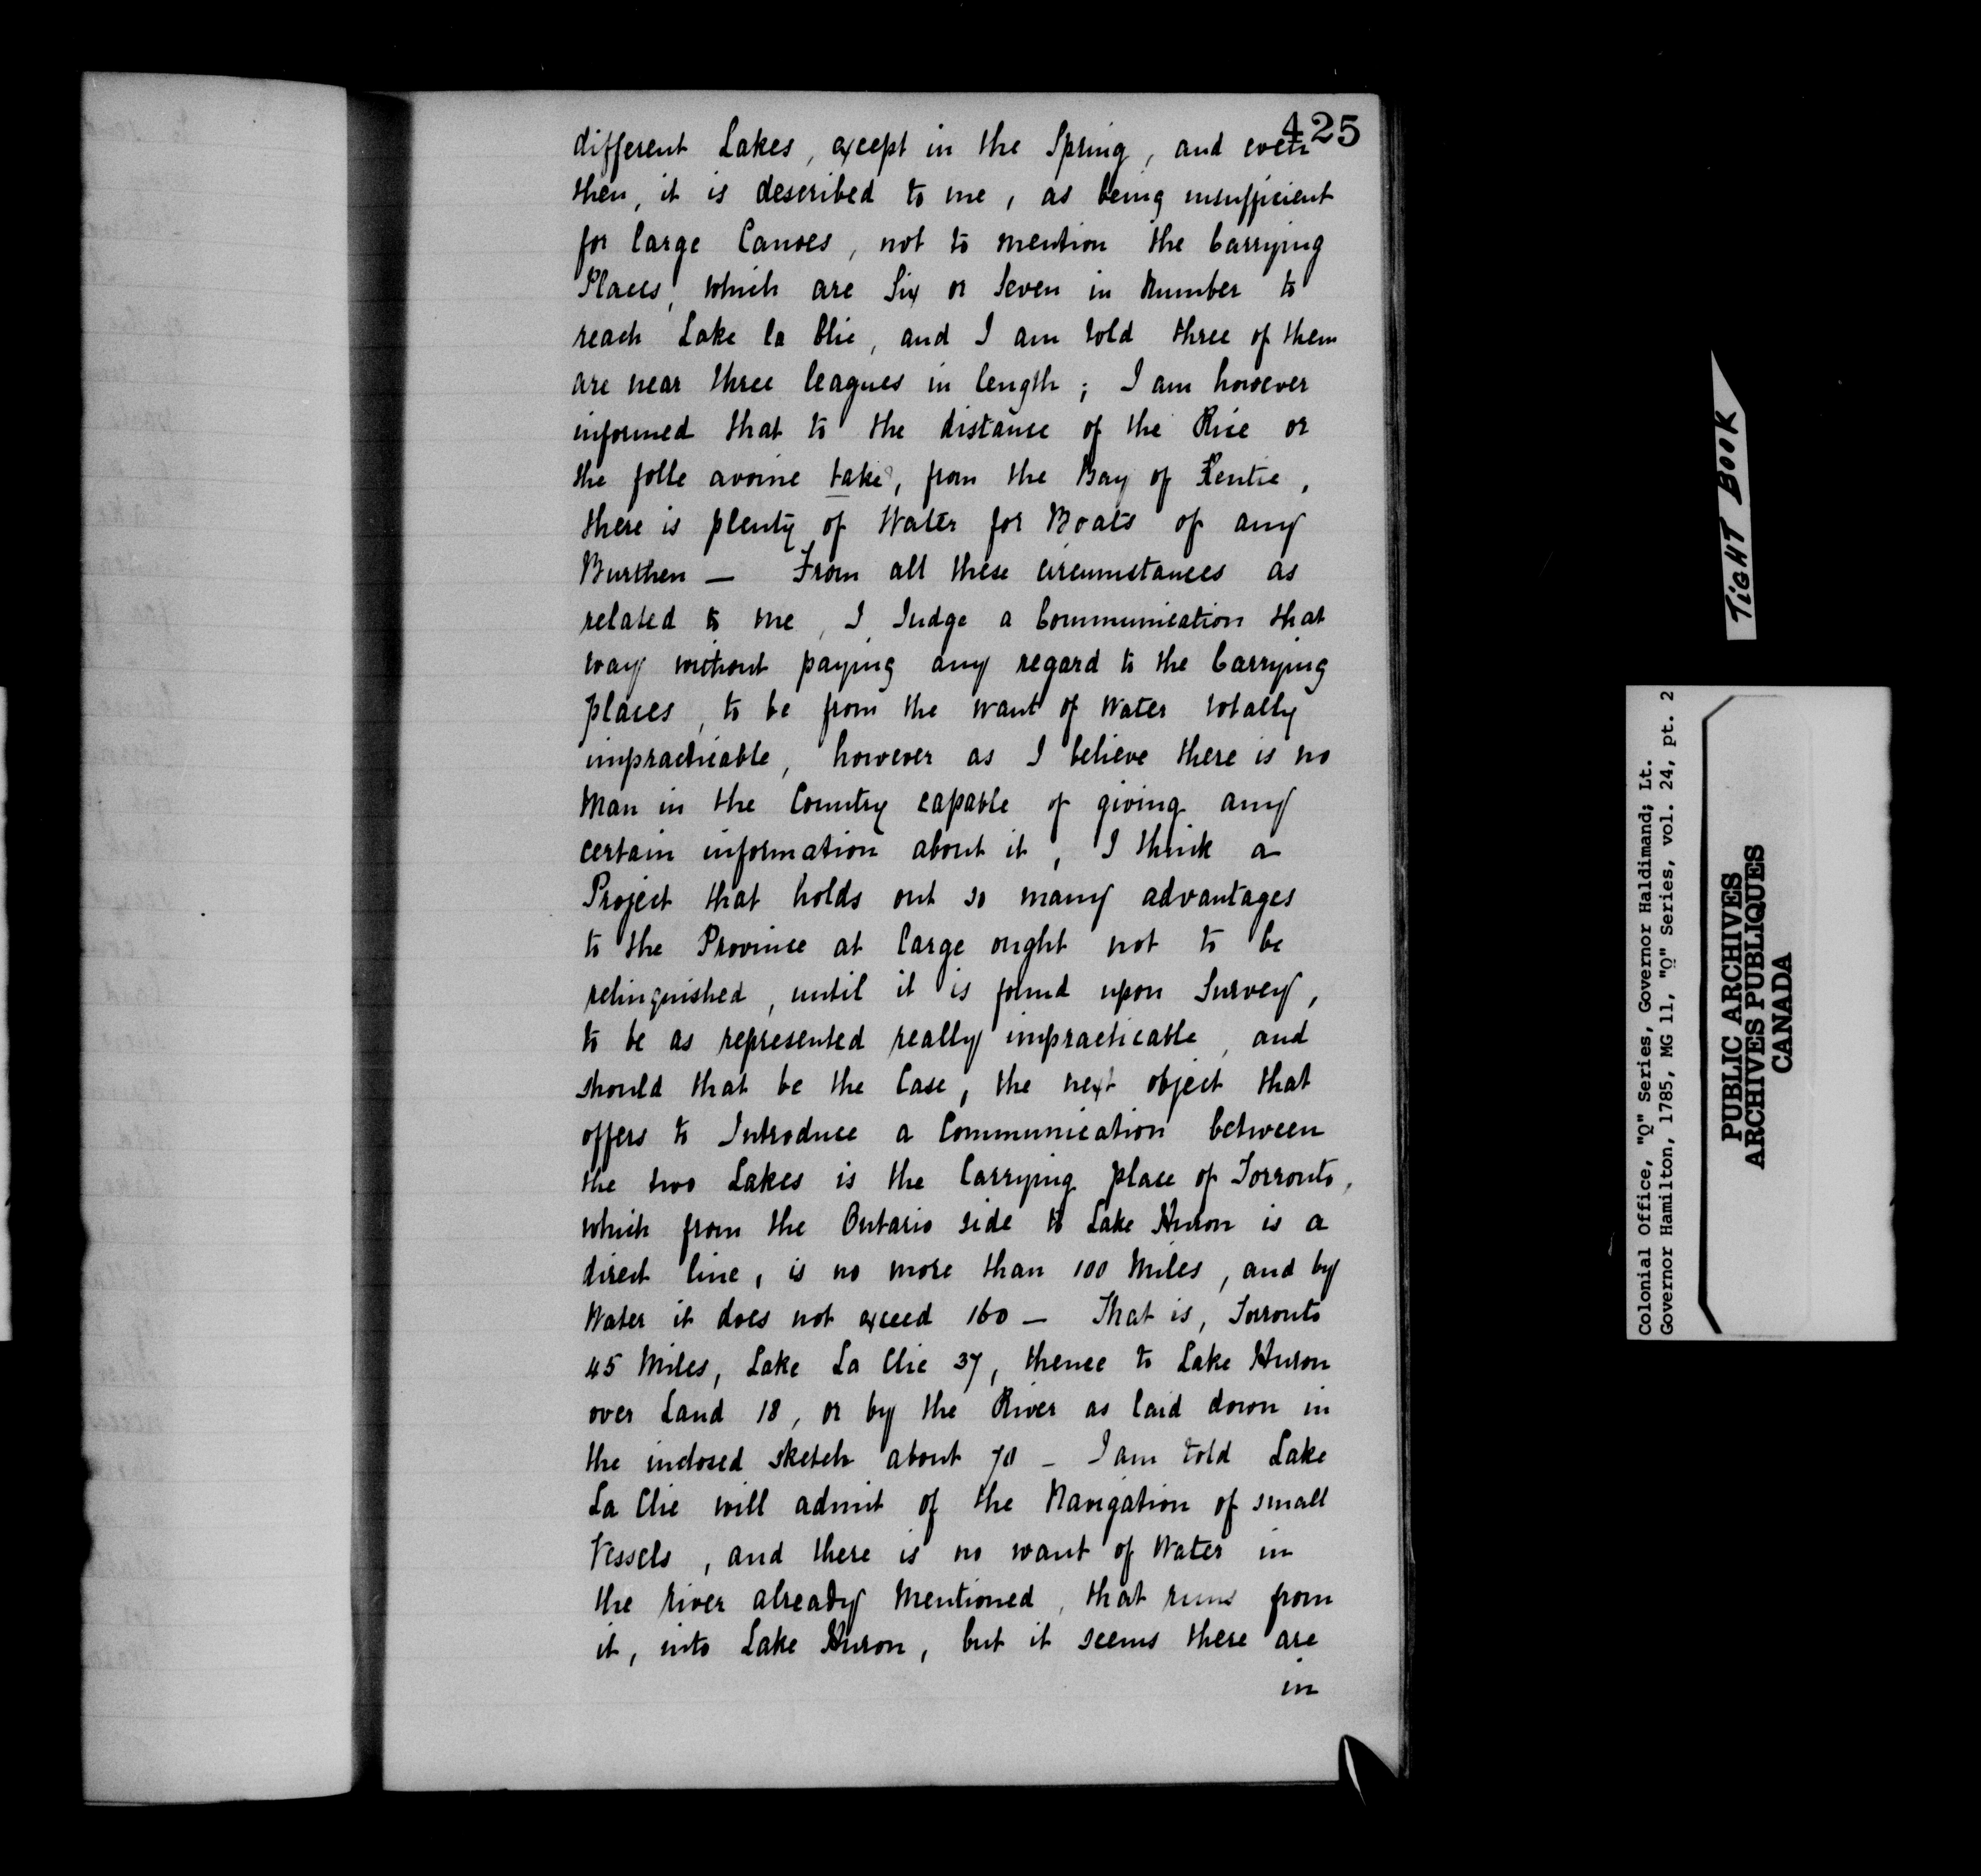 425
different Lakes, except in the Spring, and even
then, it is described to me, as being insufficient
for large Canoes, not to mention the Carrying
Places, which are Six or Seven in Number to
reach Lake la Clie, and I am told three of them
are near three leagues in length; I am however
informed that to the distance of the Rice or
the folle avoine take?, from the Bay of Kentie,
there is plenty of Water for Boats of any
Burthen — From all these circumstances as
related to me, I Judge a Communication that
way without paying any regard to the Carrying
places, to be from the want of Water totally
impracticable, however as I believe there is no
Man in the Country capable of giving any
certain information about it, I think a
Project that holds out so many advantages
to the Province at large ought not to be
relinquished, until it is found upon Survey,
to be as represented really impracticable, and
should that be the Case, the next object that
offers to Introduce a Communication between
the two Lakes is the Carrying place of Torronto,
which from the Ontario side to Lake Huron is a
direct line, is no more than 100 Miles, and by
Water it does not exceed 160 — That is, Torronto
45 Miles, Lake La Clie 37, thence to Lake Huron
over Land 18, or by the River as laid down in
the inclosed sketch about 70 — I am told Lake
La Clie will admit of the Navigation of small
Vessels, and there is no want of Water in
the river already Mentioned, that runs from
it, into Lake Huron, but it seems there are
in
TIGHT BOOK
Colonial Office, "Q" Series, Governor Haldimand; Lt.
Governor Hamilton, 1785, MG 11, "Q" Series, vol. 24, pt. 2
PUBLIC ARCHIVES
ARCHIVES PUBLIQUES
CANADA